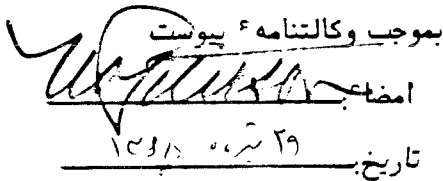 بموجب وکالتنامهٔ پیوست
امضاء:
تاریخ: ۲۹ تیر